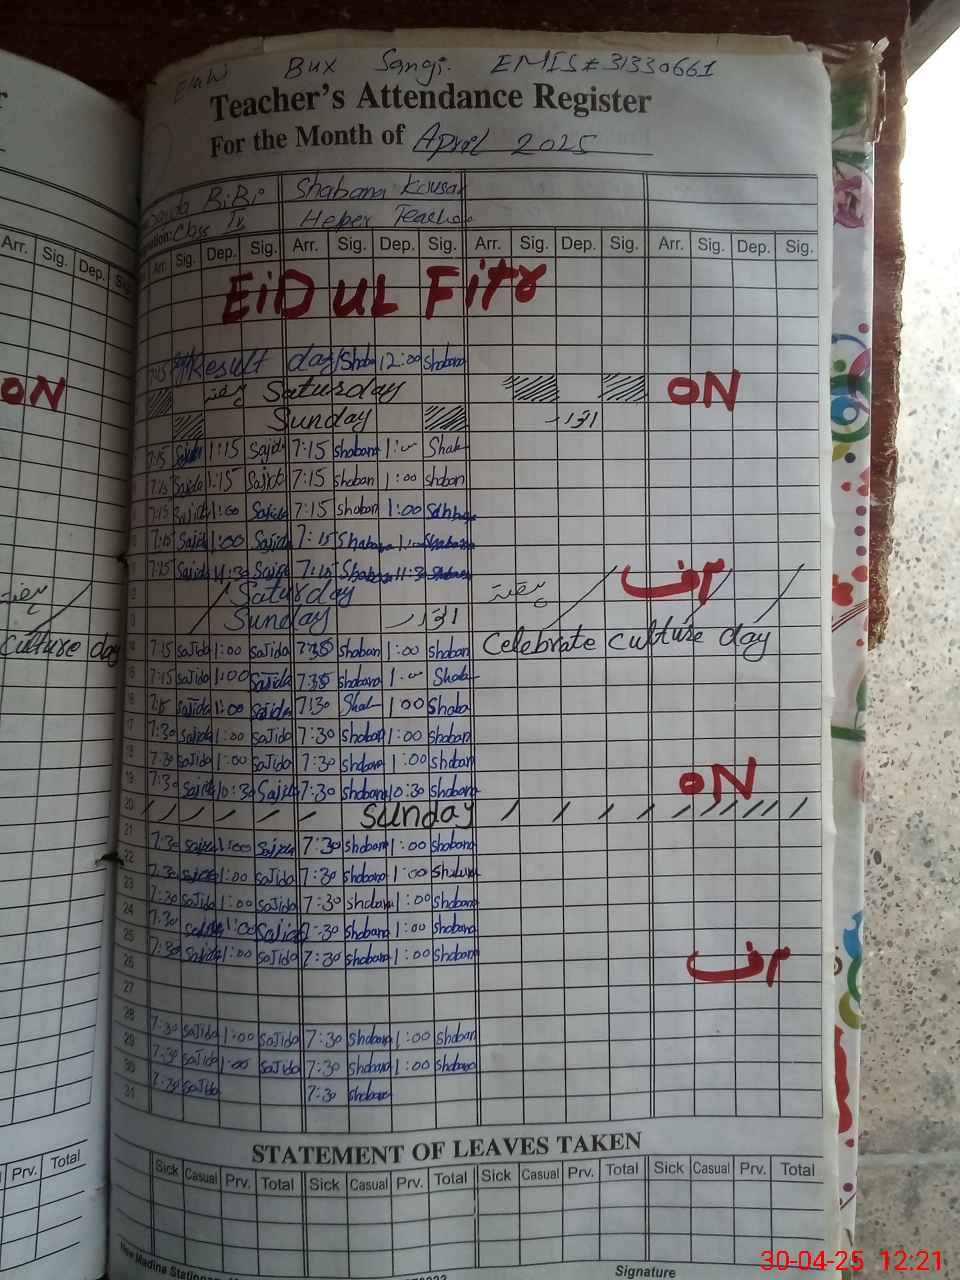 Bux Sangi. EMIS # 31330661
Teacher's Attendance Register
For the Month of April 2025
BiBi Shabana Kousar
Helper Teacher
Arr. Sig. Dep. Arr. Sig. Dep. Sig. Arr. Sig. Dep. Sig. Arr. Sig. Dep. Sig. Arr. Sig. Dep. Sig.
EiD UL Fitr
7:45 Result day Shaba 12:00 Shabana
ON Saturday ON
ہفتہ
Sunday اتوار
7:15 1:15 Sajid 7:15 Shabana 1:00 Shab
7:15 Sajida 1:15 Sajida 7:15 Shaban 1:00 Shaban
7:15 Sajida 1:00 Sajida 7:15 Shaban 1:00
7:15 Sajid 1:00 Sajida 7:15 Shabana 1:00 Shabana
7:15 Sajida 11:30 Sajida 7:15 Shabana 11:30 Shabana
ہفتہ Saturday ہفتہ آف
Sunday اتوار
Culture day 14 7:15 Sajida 1:00 Sajida Shaban 1:00 Shaban Celebrate culture day
15 7:15 Sajida 1:00 Sajida Shabana 1:00 Shab
16 7:15 Sajida 1:00 Sajida 7:30 Shab 1:00 Shaba
17 7:30 Sajida 1:00 Sajida 7:30 Shaban 1:00 Shaban
18 7:30 Sajida 1:00 Sajida 7:30 Shabana 1:00 Shaban
19 7:30 Sajida 10:30 Sajida 7:30 Shabana 10:30 Shabana ON
20 Sunday
21 7:30 1:00 7:30 Shaban 1:00 Shabana
22 7:30 1:00 Sajida 7:30 Shabana 1:00 Shaban
23 7:30 Sajida 1:00 Sajida 7:30 Shabana 1:00 Shabana
24 7:30 1:00 Sajida 7:30 Shabana 1:00 Shabana
25 7:30 Sajida 1:00 Sajida 7:30 Shabana 1:00 Shabana
26 آف
27
28 7:30 Sajida 1:00 Sajida 7:30 Shabana 1:00 Shaban
29 7:30 Sajida 1:00 Sajida 7:30 Shabana 1:00 Shabana
30 7:30 Sajida 7:30 Shabana
31
STATEMENT OF LEAVES TAKEN
Prv. Total Sick Casual Prv. Total Sick Casual Prv. Total Sick Casual Prv. Total Sick Casual Prv. Total
New Madina Stationery
Signature
30-04-25 12:21